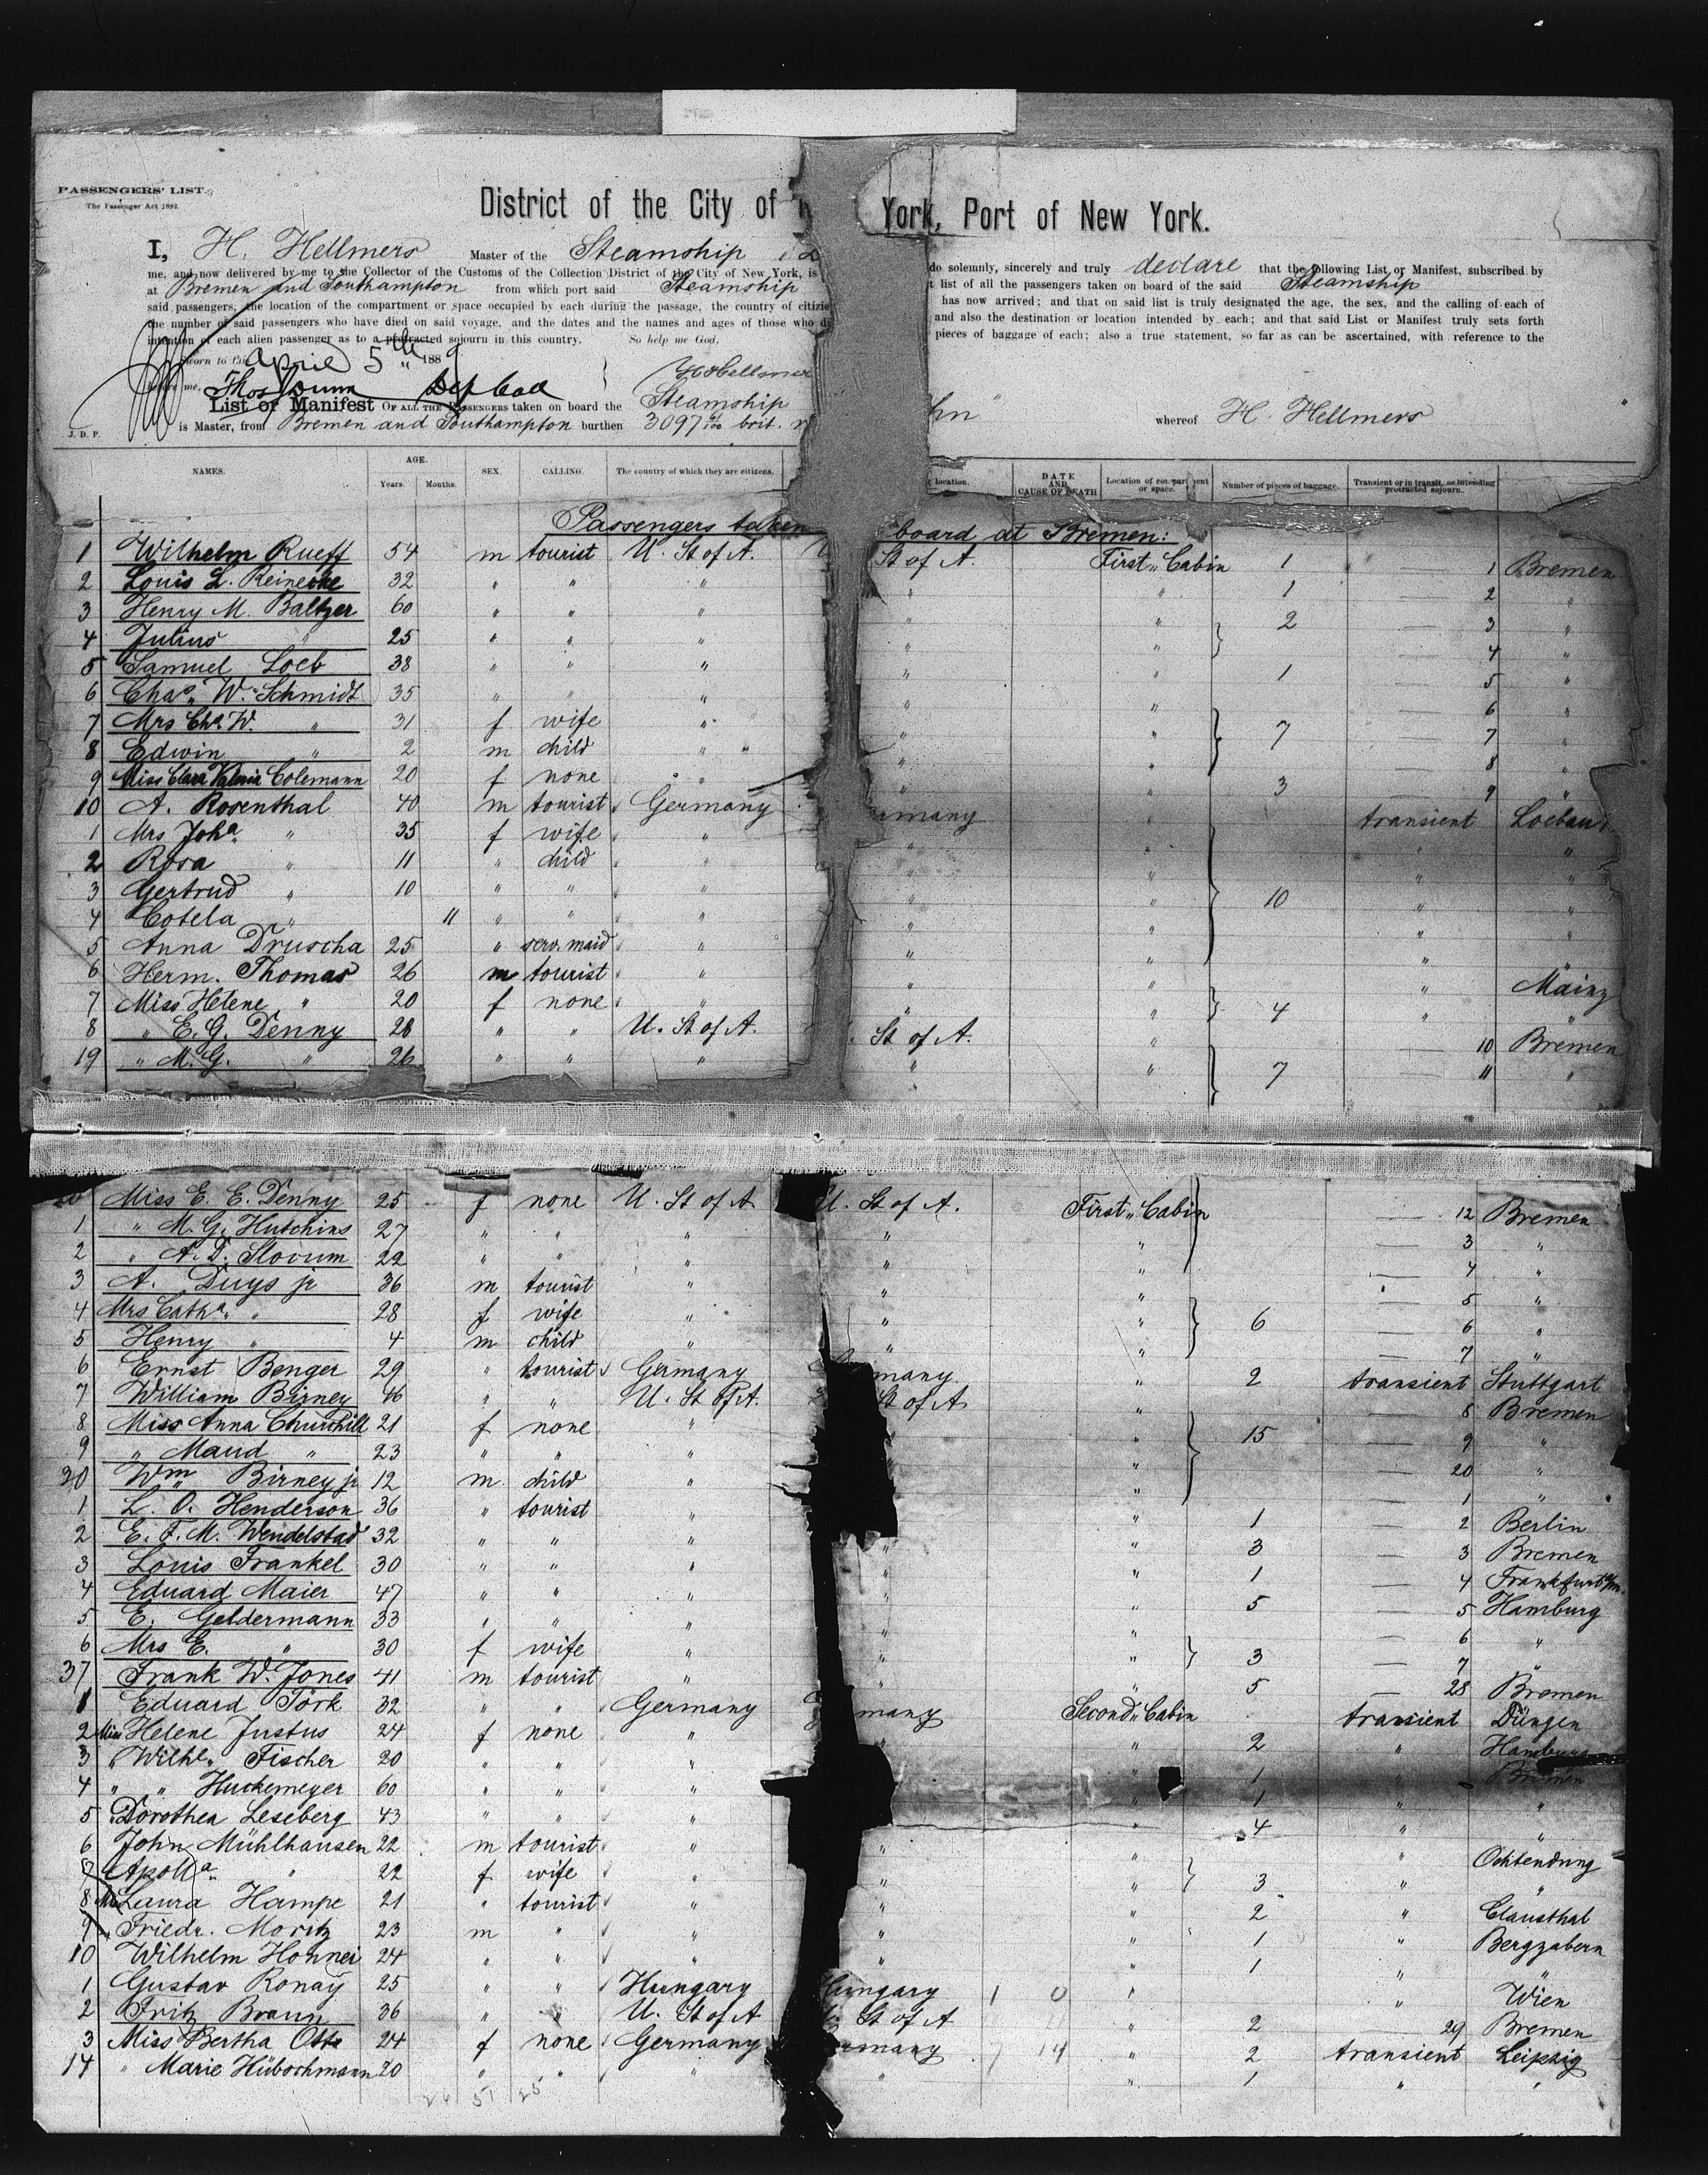 PASSENGERS' LIST.
The Passenger Act 1882.
District of the City of York, Port of New York.
I, H. Hellmers Master of the Steamship do solemnly, sincerely and truly declare that the following List or Manifest, subscribed by
me, and now delivered by me to the Collector of the Customs of the Collection District of the City of New York, is list of all the passengers taken on board of the said Steamship
at Bremen and Southampton from which port said Steamship has now arrived; and that on said list is truly designated the age, the sex, and the calling of each of
said passengers, the location of the compartment or space occupied by each during the passage, the country of and also the destination or location intended by each; and that said List or Manifest truly sets forth
the number of said passengers who have died on said voyage, and the dates and the names and ages of those who pieces of baggage of each; also a true statement, so far as can be ascertained, with reference to the
intention of each alien passenger as to a protracted sojourn in this country. So help me God.
Sworn to April 5th 1889
before me, Thos Dunn Dep Coll
List or Manifest OF ALL THE PASSENGERS taken on board the Steamship
J. D. P. is Master, from Bremen and Southampton burthen 3097 brit. whereof H. Hellmers
NAMES. AGE. Years. Months. SEX. CALLING. The country of which they are citizens. location. DATE AND CAUSE OF DEATH Location of compartment or space. Number of pieces of baggage. Transient or in transit, or intending protracted sojourn.
Passengers taken board at Bremen:
1 Wilhelm Rueff 54 m tourist U. St of A. St of A. First Cabin 1 — 1 Bremen
2 Louis L. Reinecke 32 " " " " " 1 — 2 "
3 Henry M. Baltzer 60 " " " " " 2 — 3 "
4 Julius " 25 " " " " " — 4 "
5 Samuel Loeb 38 " " " " " 1 — 5 "
6 Chas. W. Schmidt 35 " " " " " — 6 "
7 Mrs Chs. W. " 31 f wife " " " 7 — 7 "
8 Edwin " 2 m child " " " — 8 "
9 Miss Clara Valeria Colemann 20 f none " " " 3 — 9 "
10 A. Rosenthal 40 m tourist Germany " transient Loebau
1 Mrs Joha. " 35 f wife " " " " "
2 Rosa " 11 " child " " " " "
3 Gertrud " 10 " " " " " 10 " "
4 Cotela " 11 " " " " " " "
5 Anna Druscha 25 " serv. maid " " " " "
6 Herm. Thomas 26 m tourist " " " " Mainz
7 Miss Helene " 20 f none " " " 4 " "
8 " E. G. Denny 28 " " U. St of A. St of A. " — 10 Bremen
19 " M. G. " 26 " " " " " 7 — 11 "
20 Miss E. E. Denny 25 f none U. St of A U. St of A. First Cabin — 12 Bremen
1 " M. G. Hutchins 27 " " " " " — 3 "
2 " A. D. Slocum 22 " " " " " — 4 "
3 A. Duys jr 36 m tourist " " " — 5 "
4 Mrs Catha. " 28 f wife " " " 6 — 6 "
5 Henry " 4 m child " " " — 7 "
6 Ernst Benger 29 " tourist Germany many " 2 transient Stuttgart
7 William Birney 46 " " U. St of A. St of A " — 8 Bremen
8 Miss Anna Churchill 21 f none " " 15 — 9 "
9 " Maud " 23 " " " " — 20 "
20 Wm Birney jr 12 m child " " — 1 "
1 L. O. Henderson 36 " tourist " " 1 — 2 Berlin
2 E. F. M. Wendelstad 32 " " " " " 3 — 3 Bremen
3 Louis Frankel 30 " " " " " 1 — 4 Frankfurt a/m.
4 Eduard Maier 47 " " " " " 5 — 5 Hamburg
5 E. Geldermann 33 " " " " " — 6 "
6 Mrs E. " 30 f wife " " " 3 — 7 "
37 Frank W. Jones 41 m tourist " " " 5 — 28 Bremen
1 Eduard Törk 32 " " Germany many Second Cabin transient Düngen
2 Miss Helene Justus 24 f none " " " 2 " Hamburg
3 " Wilhe. Fischer 20 " " " " 1 " Bremen
4 " " Huckemeyer 60 " " " " 1 " "
5 " Dorothea Leseberg 43 " " " " 4 " "
6 John Mühlhausen 22 m tourist " " " " Ochtendung
7 Apolla. " 22 f wife " " " 3 " "
8 Laura Hampe 21 " tourist " " " 2 " Clausthal
9 Friedr. Moritz 23 m " " " " 1 " Bergzabern
10 Wilhelm Honnei 24 " " " " " 1 " "
1 Gustav Ronay 25 " " Hungary Hungary 1 0 " " Wien
2 Fritz Braun 36 " " U. St of A St of A " 2 29 Bremen
3 Miss Bertha Otto 24 f none Germany many 7 14 " 2 transient Leipzig
14 " Marie Hübschmann 20 " " " " " 1 " "